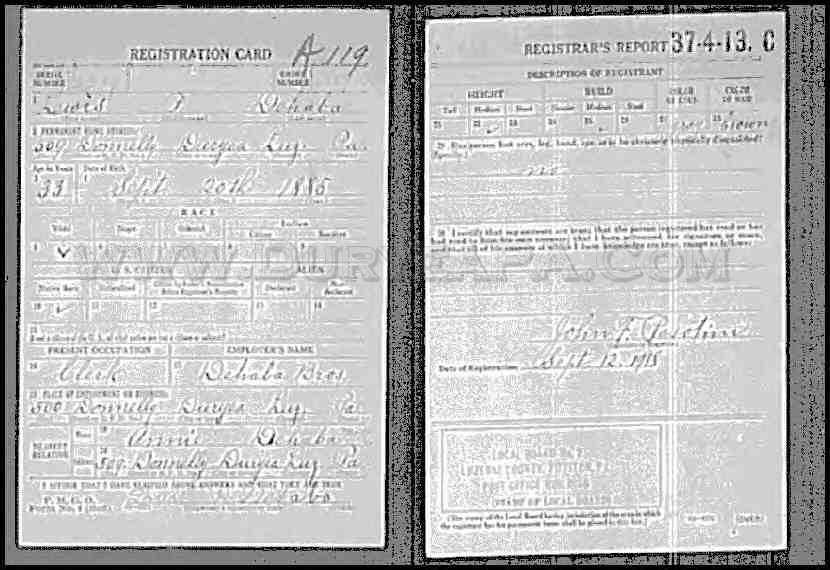 REGISTRATION CARD A 119
SERIAL NUMBER ORDER NUMBER
1 Lewis Dehaba
2 PERMANENT HOME ADDRESS:
509 Donnelly Duryea Luz. Pa.
Age in Years Date of Birth
33 Sept. 20th 1885
RACE
White Negro Oriental Indian
Citizen
5 6 7 8 9
U. S. CITIZEN ALIEN
Native Born Naturalized Declarant
10 11 12 13 14
15
PRESENT OCCUPATION EMPLOYER'S NAME
16 Clerk 17 Dehaba Bros
18 PLACE OF EMPLOYMENT OR BUSINESS:
500 Donnelly Duryea Luz. Pa.
NEAREST RELATIVE
Name 19 Annie Dehaba
Address 20 509 Donnelly Duryea Luz Pa
I AFFIRM THAT I HAVE VERIFIED ABOVE ANSWERS AND THAT THEY ARE TRUE
P. M. G. O.
REGISTRAR'S REPORT 37-4-13. C
DESCRIPTION OF REGISTRANT
HEIGHT BUILD COLOR OF EYES COLOR OF HAIR
Tall Medium Short Slender Medium Stout
21 22 23 24 25 26 27 28
29 Has person lost arm, leg, hand, eye, or is he obviously physically disqualified?
(Specify.)
no
30 I certify that my answers are true; that the person registered has read or has
had read to him his own answers; that I have witnessed his signature or mark,
and that all of his answers of which I have knowledge are true, except as follows:
WWW.DURYEAPA.COM
John J.
Date of Registration Sept 12, 1918
LOCAL BOARD NO. 7
LUZERNE COUNTY, PA.
POST OFFICE BUILDING
(STAMP OF LOCAL BOARD)
(The stamp of the Local Board having jurisdiction of the area in which
the registrant has his permanent home shall be placed in this box.)
(OVER)